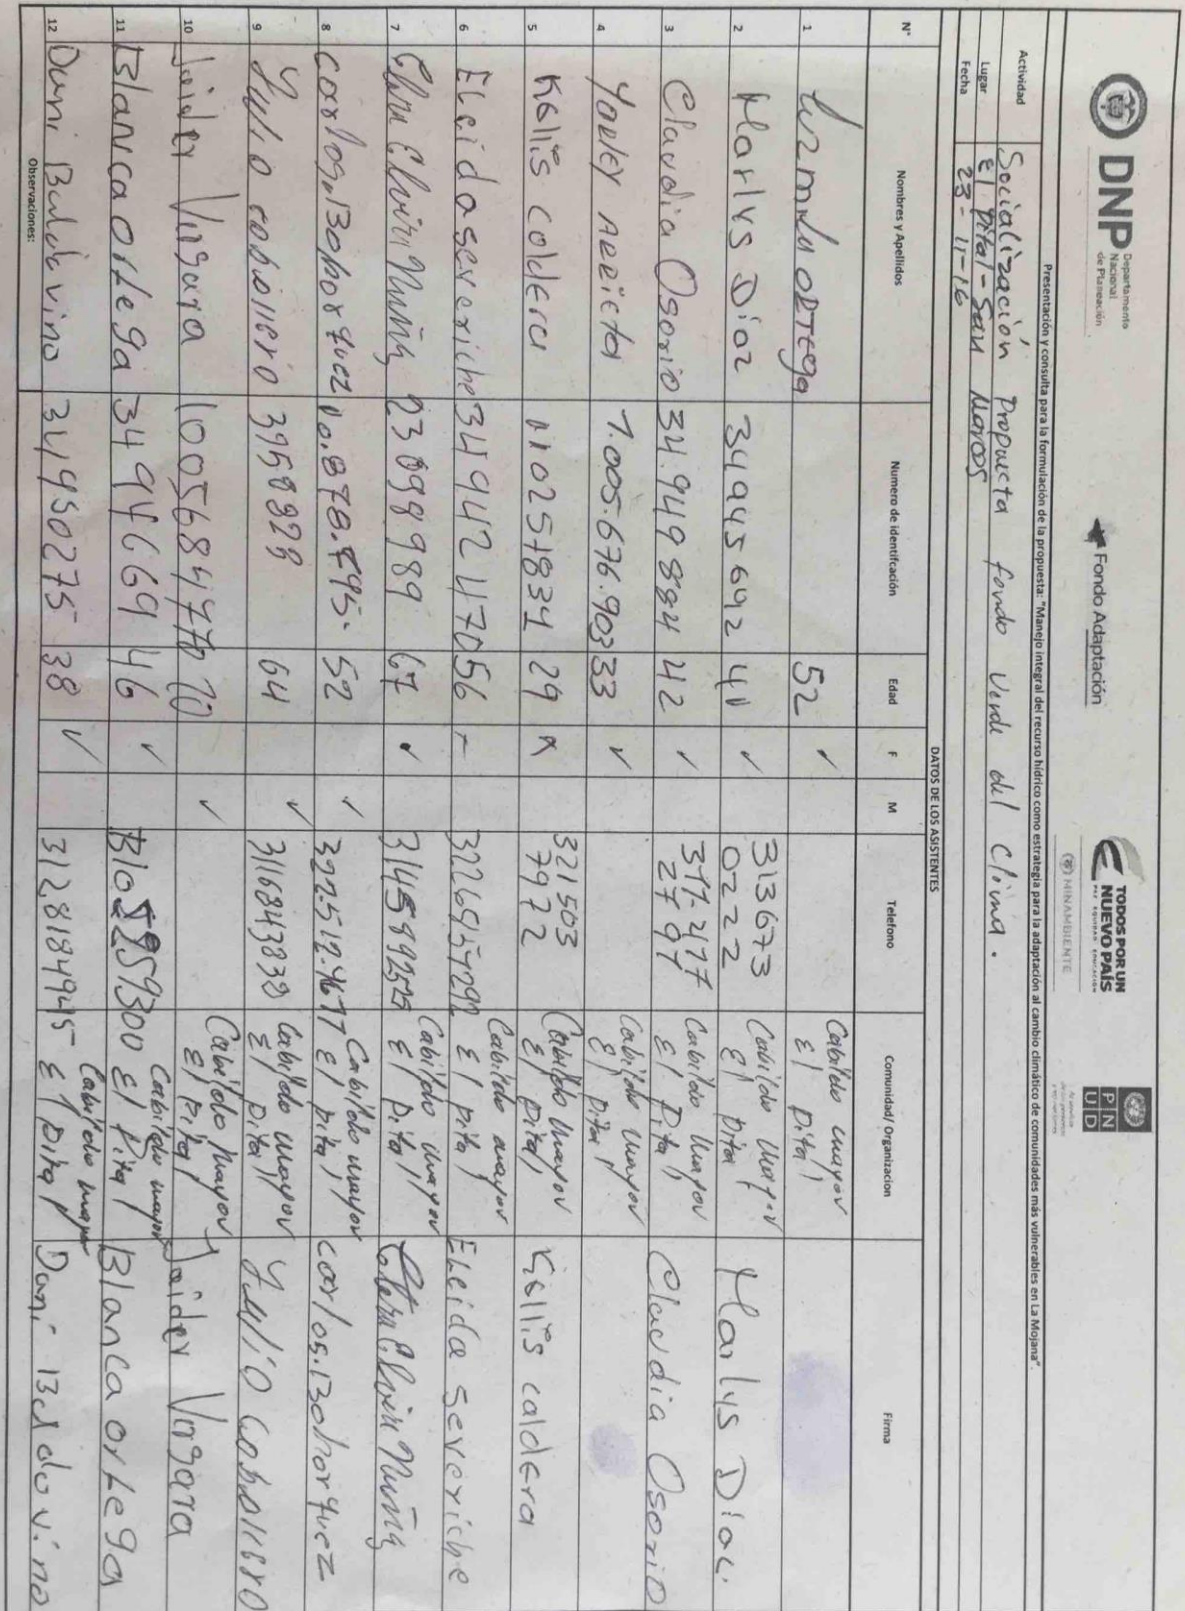 DNP Departamento
Nacional
de Planeación
Fondo Adaptación
TODOS POR UN
NUEVO PAÍS
PAZ EQUIDAD EDUCACIÓN
MINAMBIENTE
PNUD
Presentación y consulta para la formulación de la propuesta: "Manejo integral del recurso hídrico como estrategia para la adaptación al cambio climático de comunidades más vulnerables en La Mojana".
Actividad Socialización Propuesta fondo Verde del Clima.
Lugar El Pital - San Marcos
Fecha 23-11-16
DATOS DE LOS ASISTENTES
N° Nombres y Apellidos Numero de identifcación Edad F M Telefono Comunidad/ Organizacion Firma
1 Luzmila ORTEga 52 ✓ Cabildo mayor El Pital
2 Marlys Diaz 34945692 41 ✓ 313673 0222 Cabildo Mayor El Pital Marlys Diaz.
3 Claudia Osorio 34.949884 42 ✓ 311-217 27 97 Cabildo Mayor El Pital Claudia Osorio
4 YORLEY ARRIEta 1.005.676.903 33 ✓ Cabildo Mayor El Pital
5 Kellis coldera 29 x 321503 7972 Cabildo Mayor El Pital Kellis caldEra
6 ELcida severiche 34942470 56 Cabildo mayor El Pital ELcida severiche
7 Elvira 23098989 67 ✓ Cabildo Mayor El Pital
8 Carlos.Bohorquez 10.878.795. 52 ✓ 322.512.4677 Cabildo mayor El Pital Carlos.Bohorquez
9 Julio caballero 3958828 64 ✓ 3116843838 Cabildo Mayor El Pital Julio Caballero
10 Jaider Vergara 1005684770 70 ✓ Cabildo Mayor El Pital Jaider Vergara
11 Blanca orLega 3494669 46 ✓ Cabildo mayor El Pital Blanca orLega
12 Dani Baldovino 38 ✓ Cabildo mayor El Pital Dani Baldovino
Observaciones: